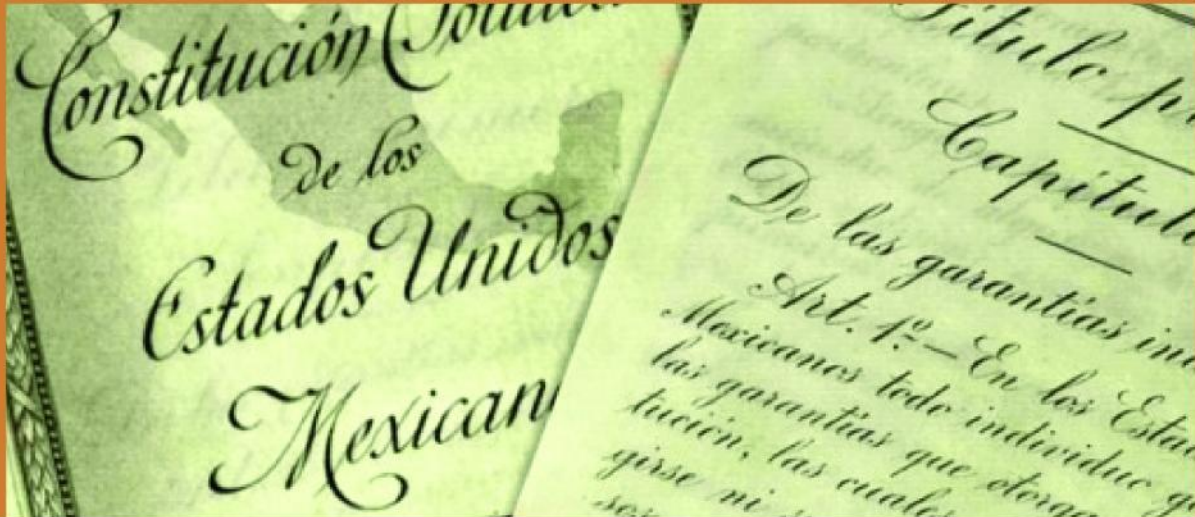 Constitución
de los
Estados Unidos
Mexican
Título
Capítulo
De las garantías
Art. 1º.—En los Estad
Mexicanos todo individuo
las garantías que otorga
tución, las cuales
girse ni